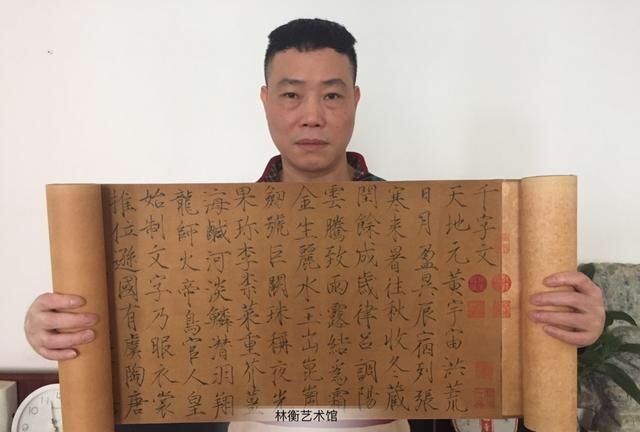 千字文
天地元黃宇宙洪荒
日月盈昃辰宿列張
寒来暑往秋收冬藏
閏餘成歲律呂調陽
雲騰致雨露結為霜
金生麗水玉出崑崗
劒號巨闕珠稱夜光
果珎李柰菜重芥薑
海鹹河淡鱗潛羽翔
龍師火帝鳥官人皇
始制文字乃服衣裳
推位遜國有虞陶唐
林衡艺术馆